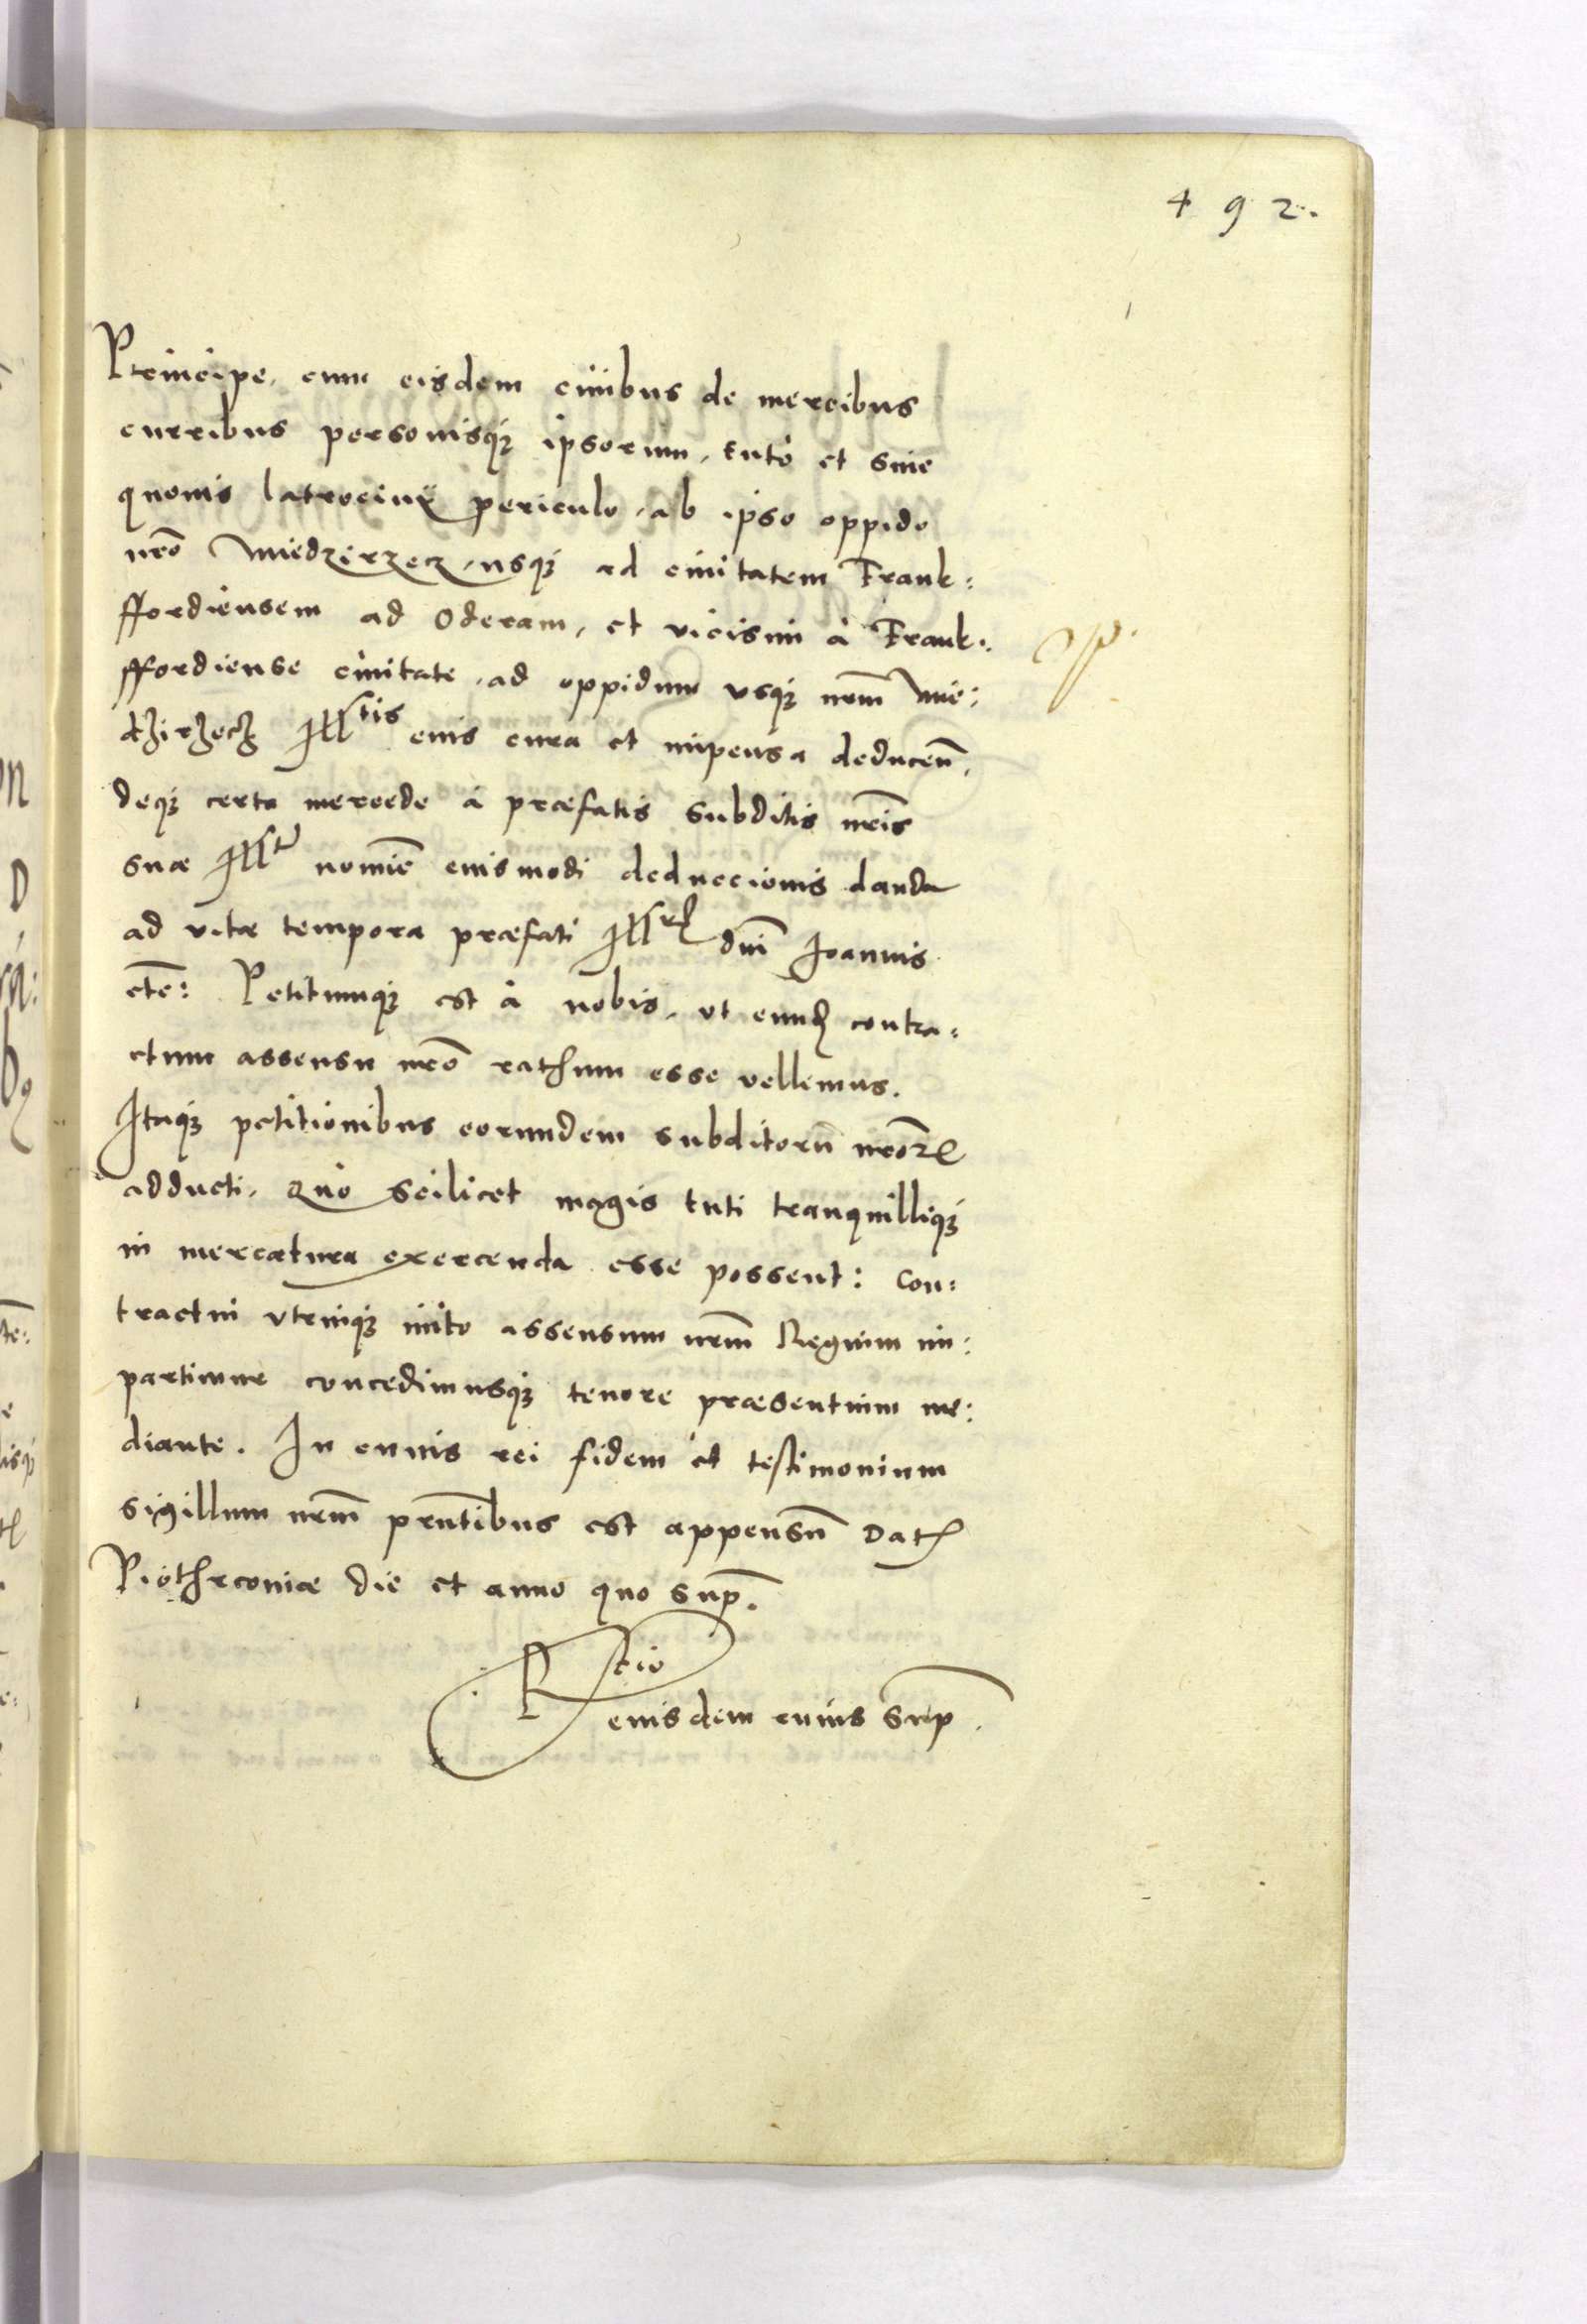 492.
Principe, cum eisdem ciuibus de mercibus
curribus personisq₃ ipsorum, tutò et sine
quouis latrocinij periculo, ab ipso oppido
nrõ Miedzirzecz, usq₃ ad ciuitatem Frank:
ffordiensem ad Oderam, et vicissim à Frank:
ffordiense ciuitate, ad oppidum vsq₃ nrm̃ Mie:
dzirzecz Illtis eius cura et impensa deducen̄,
deq₃ certa mercede à præfatis subditis nrĩs
suæ Illti nomiẽ eiusmodi deduccionis danda
ad vitæ tempora præfati Illris dnĩ Ioannis
etc̃: Petitumq₃ est à nobis, vt eund contra:
ctum assensu nrõ rathum esse vellemus.
Itaq₃ petitionibus eorundem subditorũ nrõrum
adducti, Quò scilicet magis tuti tranquilliq₃
in mercatura exercenda esse possent: Con:
tractui vtrinq₃ inito assensum nrm̃ Regium im:
partimur concedimusq₃ tenore præsentium me:
diante. In cuius rei fidem et testimonium
sigillum nrm̃ prñtibus est appensũ Dat
Piothrconiæ die et anno quo sup̃.
Rtio
eiusdem cuius sup̃.